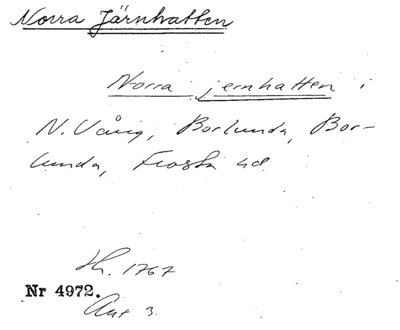 Norra Järnhatten
Norra jernhatten i
N. Vång, Borlunda, Bor-
lunda, Frosta hd
Sk. 1767
Nr 4972.
Akt 3.